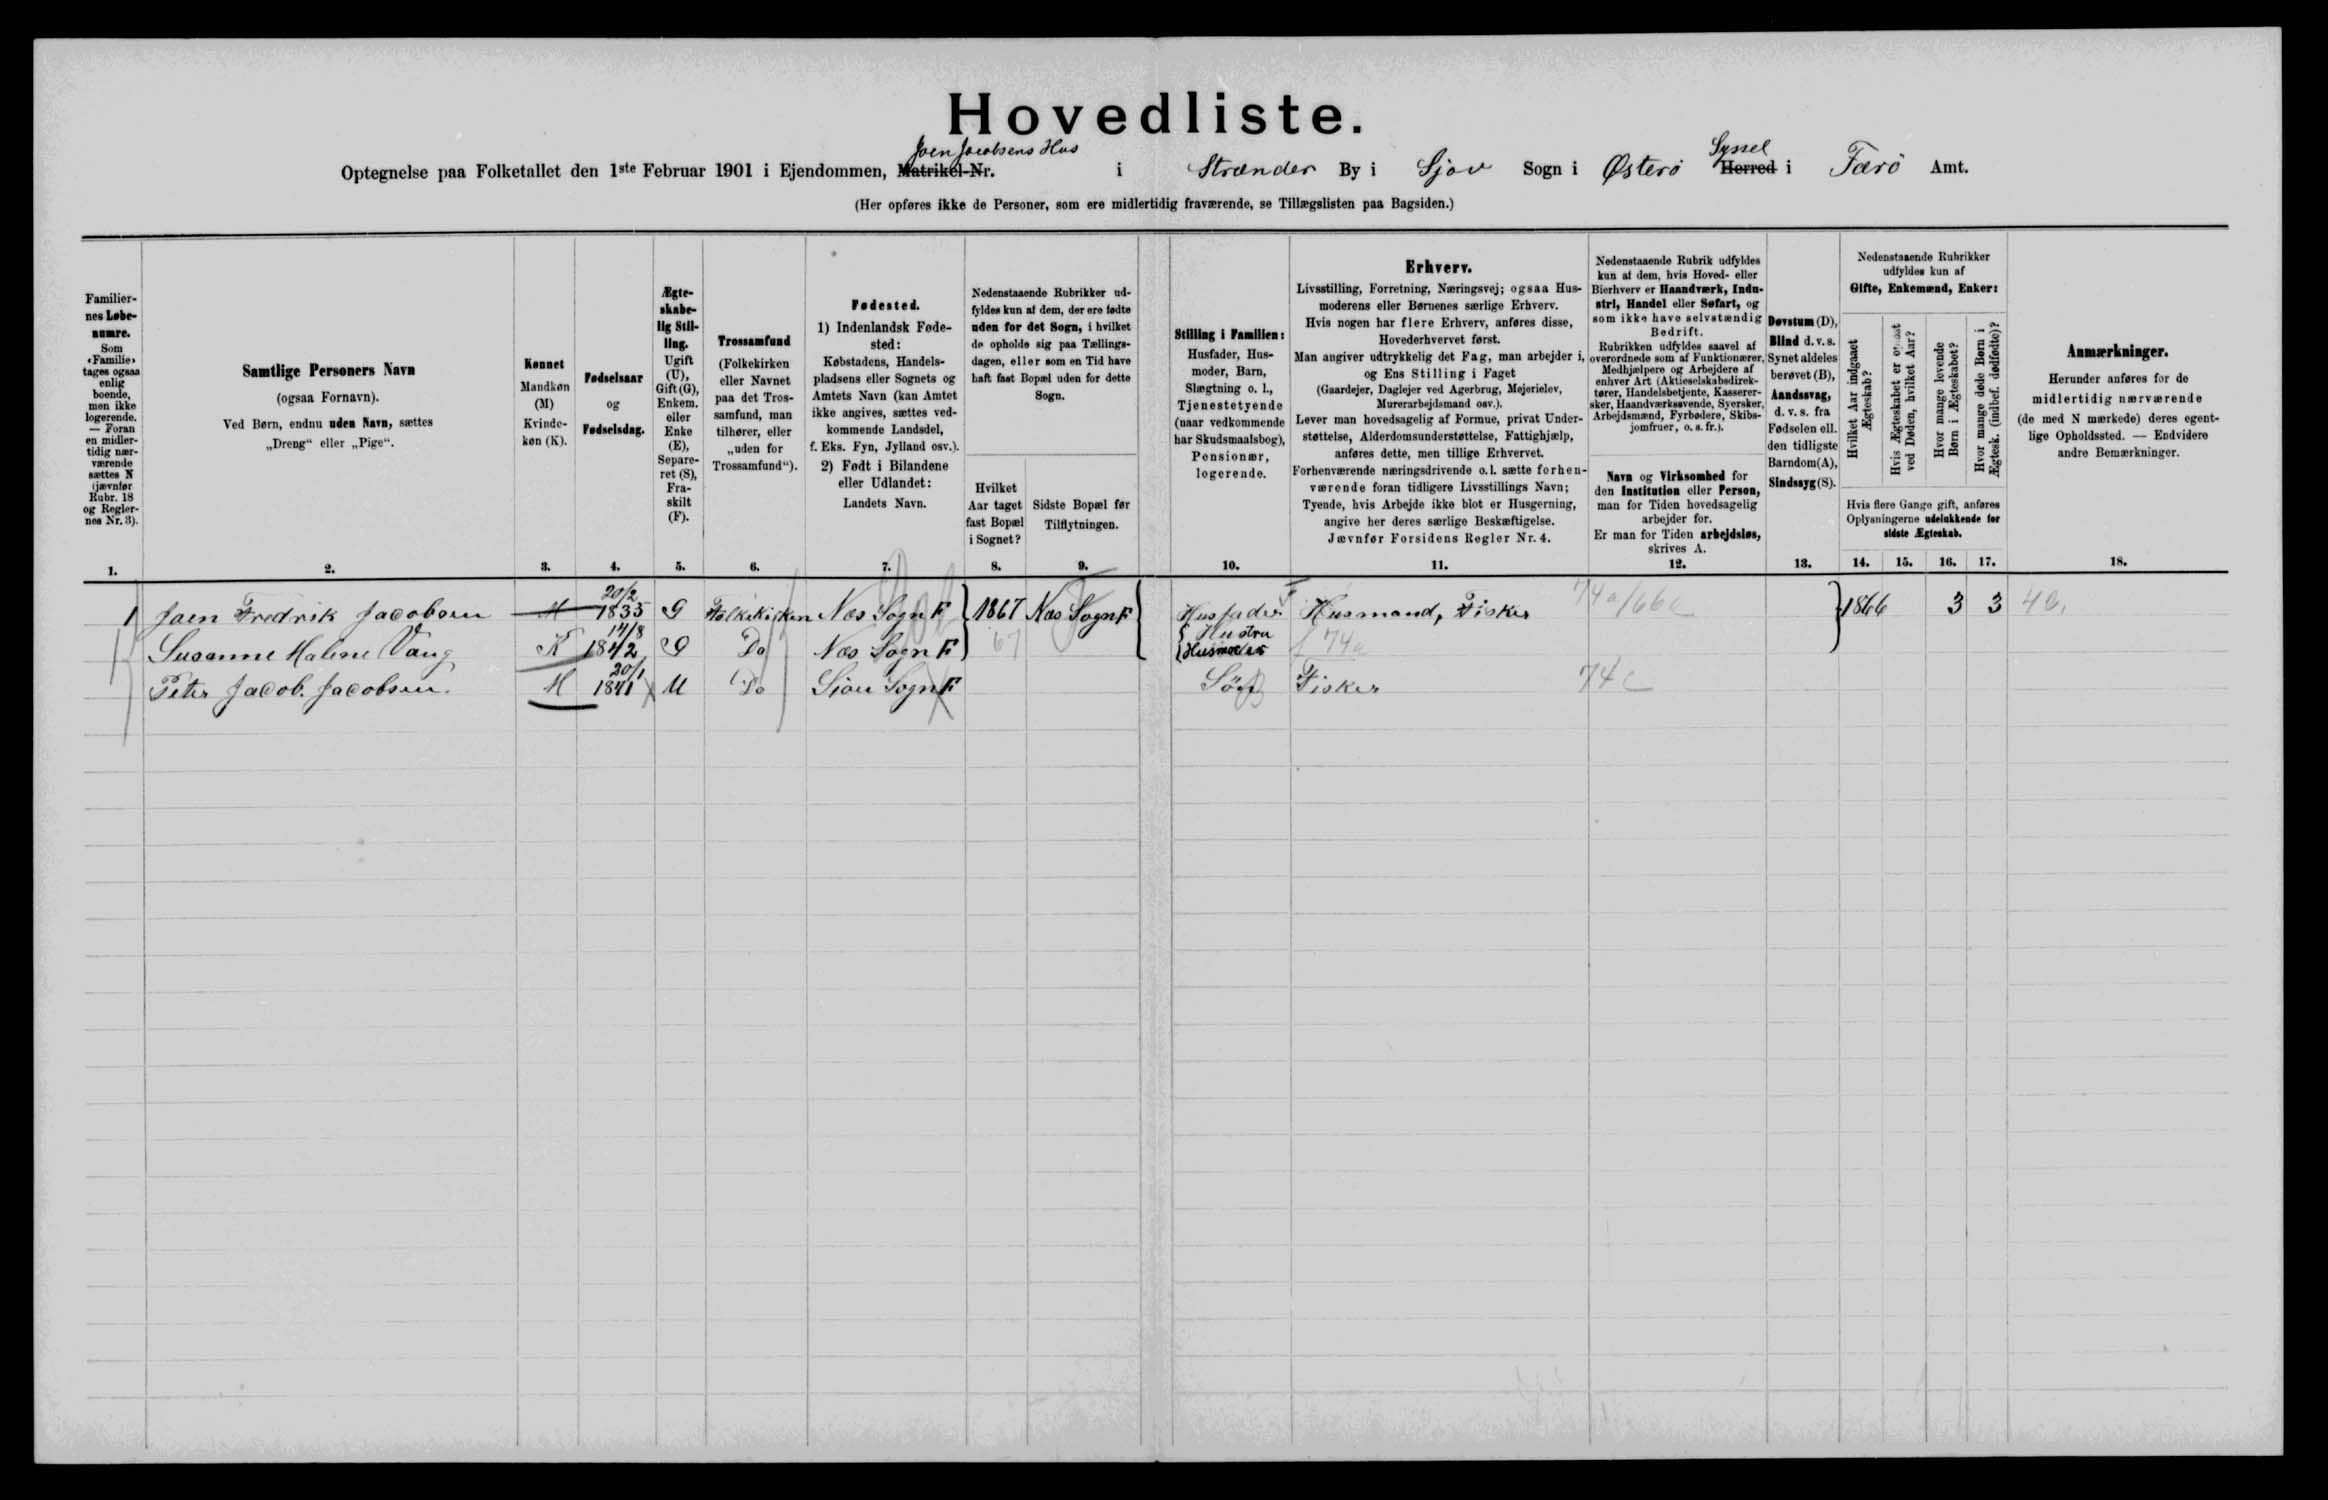 Hovedliste.
Joen Jacobsens Hus
Syssel
Optegnelse paa Folketallet den 1ste Februar 1901 i Ejendommen, Matrikel-Nr. i Strænder By i Sjov Sogn i Østerö Herred i Færö Amt.
(Her opføres ikke de Personer, som ere midlertidig fraværende, se Tillægslisten paa Bagsiden.)
Familier-
nes Løbe-
numre.
Som
«Familie»
tages ogsaa
enlig
boende,
men ikke
logerende.
— Foran
en midler-
tidig nær-
værende
sættes N
(jævnfør
Rubr. 18
og Regler-
nes Nr. 3).
1.
Samtlige Personers Navn
(ogsaa Fornavn).
Ved Børn, endnu uden Navn, sættes
„Dreng“ eller „Pige“.
2.
Kønnet
Mandkøn
(M)
Kvinde-
køn (K).
3.
Fødselsaar
og
Fødselsdag.
4.
Ægte-
skabe-
lig Stil-
ling.
Ugift
(U),
Gift (G),
Enkem.
eller
Enke
(E),
Separe-
ret (S),
Fra-
skilt
(F).
5.
Trossamfund
(Folkekirken
eller Navnet
paa det Tros-
samfund, man
tilhører, eller
„uden for
Trossamfund“).
6.
Fødested.
1) Indenlandsk Føde-
sted:
Købstadens, Handels-
pladsens eller Sognets og
Amtets Navn (kan Amtet
ikke angives, sættes ved-
kommende Landsdel,
f. Eks. Fyn, Jylland osv.).
2) Født i Bilandene
eller Udlandet:
Landets Navn.
7.
Nedenstaaende Rubrikker ud-
fyldes kun af dem, der ere fødte
uden for det Sogn, i hvilket
de opholde sig paa Tællings-
dagen, eller som en Tid have
haft fast Bopæl uden for dette
Sogn.
Hvilket
Aar taget
fast Bopæl
i Sognet?
8.
Sidste Bopæl før
Tilflytningen.
9.
Stilling i Familien:
Husfader, Hus-
moder, Barn,
Slægtning o. l.,
Tjenestetyende
(naar vedkommende
har Skudsmaalsbog),
Pensionær,
logerende.
10.
Erhverv.
Livsstilling, Forretning, Næringsvej; ogsaa Hus-
moderens eller Børnenes særlige Erhverv.
Hvis nogen har flere Erhverv, anføres disse,
Hovederhvervet først.
Man angiver udtrykkelig det Fag, man arbejder i,
og Ens Stilling i Faget
(Gaardejer, Daglejer ved Agerbrug, Mejerielev,
Murerarbejdsmand osv.).
Lever man hovedsagelig af Formue, privat Under-
støttelse, Alderdomsunderstøttelse, Fattighjælp,
anføres dette, men tillige Erhvervet.
Forhenværende næringsdrivende o. l. sætte forhen-
værende foran tidligere Livsstillings Navn;
Tyende, hvis Arbejde ikke blot er Husgerning,
angive her deres særlige Beskæftigelse.
Jævnfør Forsidens Regler Nr. 4.
11.
Nedenstaaende Rubrik udfyldes
kun af dem, hvis Hoved- eller
Bierhverv er Haandværk, Indu-
stri, Handel eller Søfart, og
som ikke have selvstændig
Bedrift.
Rubrikken udfyldes saavel af
overordnede som af Funktionærer,
Medhjælpere og Arbejdere af
enhver Art (Aktieselskabsdirek-
tører, Handelsbetjente, Kasserer-
sker, Haandværkssvende, Syersker,
Arbejdsmænd, Fyrbødere, Skibs-
jomfruer, o. s. fr.).
Navn og Virksomhed for
den Institution eller Person,
man for Tiden hovedsagelig
arbejder for.
Er man for Tiden arbejdsløs,
skrives A.
12.
Døvstum (D),
Blind d. v. s.
Synet aldeles
berøvet (B),
Aandssvag,
d. v. s. fra
Fødselen ell.
den tidligste
Barndom (A),
Sindssyg (S).
13.
Nedenstaaende Rubrikker
udfyldes kun af
Gifte, Enkemænd, Enker:
Hvilket Aar indgaaet
Ægteskab?
Hvis Ægteskabet er opløst
ved Døden, hvilket Aar?
Hvor mange levende
Børn i Ægteskabet?
Hvor mange døde Børn i
Ægtesk. (indbef. dødfødte)?
Hvis flere Gange gift, anføres
Oplysningerne udelukkende for
sidste Ægteskab.
14. 15. 16. 17.
Anmærkninger.
Herunder anføres for de
midlertidig nærværende
(de med N mærkede) deres egent-
lige Opholdssted. — Endvidere
andre Bemærkninger.
18.
1 Joen Fredrik Jacobsen M 20/2 1835 G Folkekirken Næs Sogn F 1867 Næs Sogn F Husfader Husmand, Fisker 74a/66c 1866 3 3
Susanne Malene Vang K 14/8 1842 G Do Næs Sogn F 67 Hustru Husmoder f 74a
Peter Jacob Jacobsen. M 20/1 1841 U Do Sjov Sogn F Sön Fisker 74c